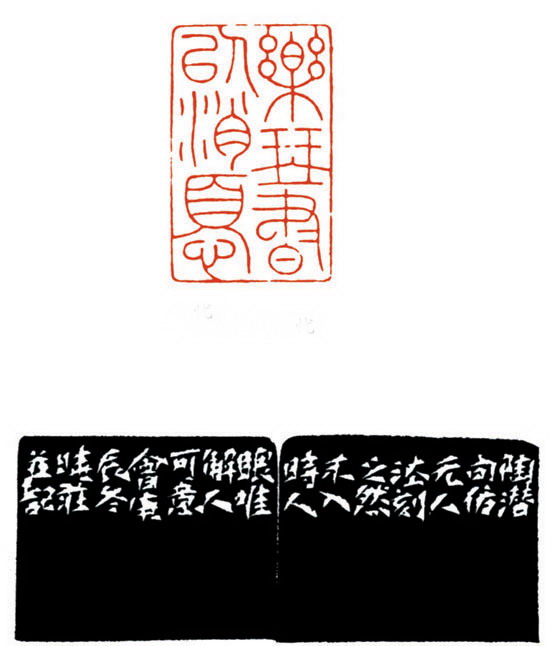 樂琴書
以消憂
陶潛
句仿
元人
法刻
之然
未入
時人
眼惟
解人
可意
會庚
辰冬
並記